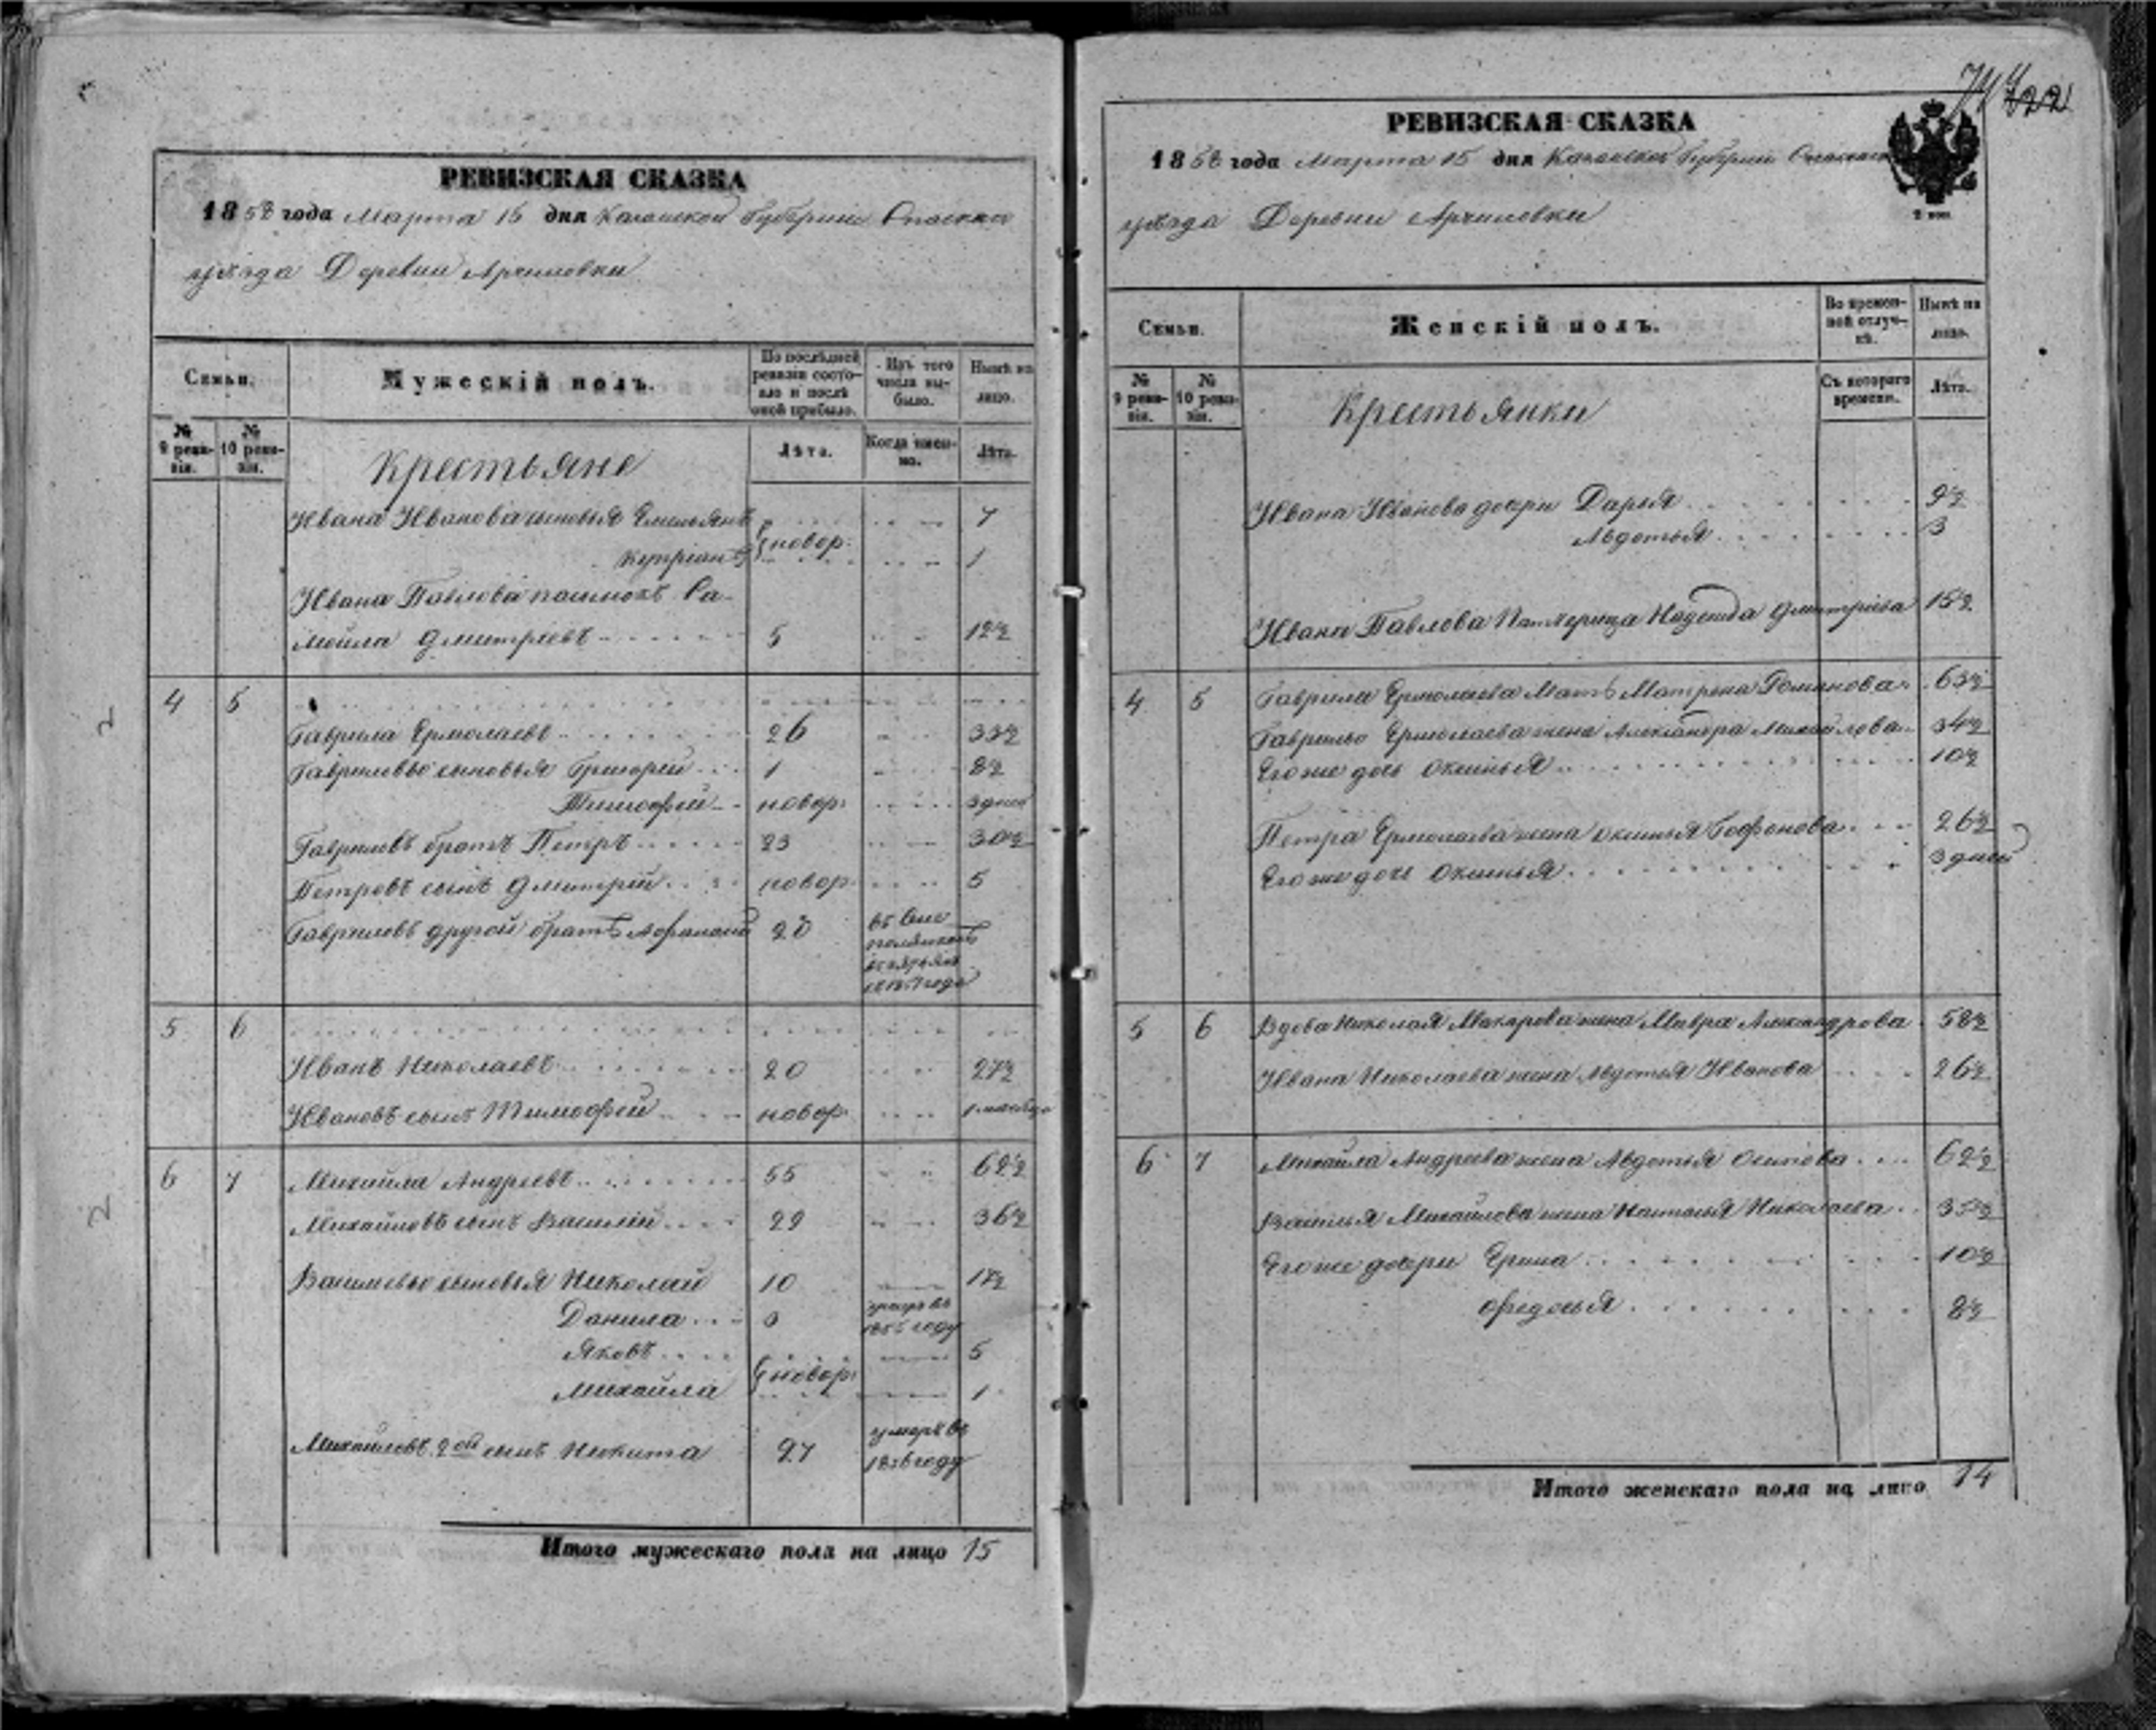 РЕВИЗСКАЯ СКАЗКА
1858 года Марта 15 дня Казанской Губернии Спаскаго
уѣзда Деревни Арчиловки
Семьи.
Мужескій полъ.
По послѣдней ревизіи состояло и послѣ оной прибыло.
Изъ того числа выбыло.
Нынѣ на лицо.
№ 9 ревизіи.
№ 10 ревизіи.
Крестьяне
Лѣта.
Когда именно.
Лѣта.
Ивана Иванова сыновья Емельянъ 7
Купріанъ } новор. 1
Ивана Павлова пасынокъ Са-
мойла Дмитріевъ 5 12½
4 5
Гаврила Ермолаевъ 26 33½
Гавриловы сыновья Григорій 1 8½
Тимофей новор. 3 дней
Гавриловъ братъ Петръ 23 30½
Петровъ сынъ Дмитрій новор. 5
Гавриловъ другой братъ Афанасій 20
1857 года
5 6
Иванъ Николаевъ 20 27½
Ивановъ сынъ Тимофей новор.
6 7 Михайла Андреевъ 55 62½
Михайловъ сынъ Василій 29 36½
Васильевы сыновья Николай 10 17½
Данила умеръ въ
году
Яковъ 5
Михайла } новор. 1
Михайловъ 2ой сынъ Никита 27 умеръ въ
1856 году
Итого мужескаго пола на лицо 15
РЕВИЗСКАЯ СКАЗКА
1858 года Марта 15 дня Казанской Губерніи
уѣзда Деревни Арчиловки
2 коп.
Семьи.
Женскій полъ.
Во временной отлучкѣ.
Нынѣ на лицо.
№ 9 ревизіи.
№ 10 ревизіи.
Крестьянки
Съ котораго времени.
Лѣта.
Ивана Иванова дочери Дарья 9½
Авдотья 3
Ивана Павлова Падчерица Надежда Дмитріева 15½
4 5 Гаврила Ермолаева Мать Матрена Романова 63½
Гаврилы Ермолаева жена Александра Михайлова 34½
Его же дочь Оксинья 10½
Петра Ермолаева жена Оксинья 26½
Его же дочь Оксинья 3 дней
5 6 Вдова Николая Макарова жена Мавра Александрова 58½
Ивана Николаева жена Авдотья Иванова 26½
6 7 Михайла Андреева жена Авдотья Осипова 62½
Василья Михайлова жена Наталья Николаева 35½
Его же дочери Ерина 10½
Федосья 8½
Итого женскаго пола на лицо 14